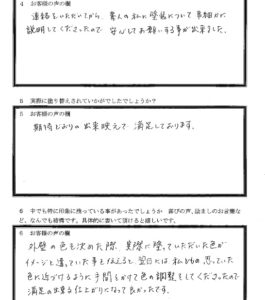 4 お客様の声の欄
連絡をいただいてから、素人の私に塗装について事細かに
説明してくださったので安心してお願いする事が出来ました。
5 実際に塗り替えされていかがでしたでしょうか?
5 お客様の声の欄
期待どおりの出来映えで満足しております。
6 中でも特に印象に残っている事があったでしょうか 喜びの声、励ましのお言葉な
ど、なんでも結構です。具体的に書いて頂けると嬉しいです。
6 お客様の声の欄
外壁の色を決めた際、実際に塗っていただいた色が
イメージと違っていた事を伝えると、翌日には私どもの思っていた
色に近づけるように手間をかけて色の調整をしてくださったので
満足の出来る仕上がりになって良かったです。